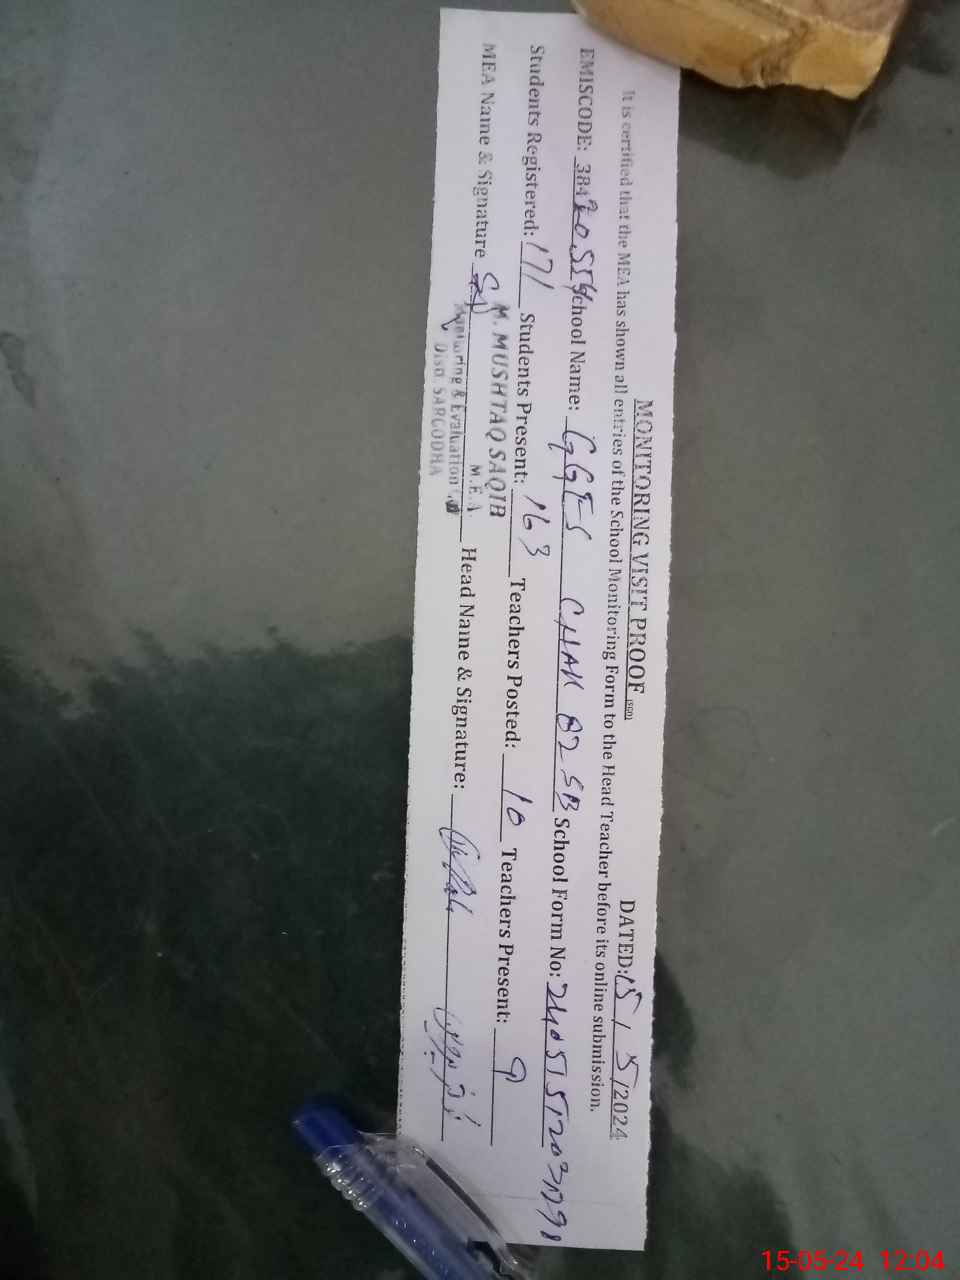 MONITORING VISIT PROOF (SED) DATED: 15 / 5 /2024
It is certified that the MEA has shown all entries of the School Monitoring Form to the Head Teacher before its online submission.
EMISCODE: 38420559 School Name: GGES CHAK 82 SB School Form No:
Students Registered: 171 Students Present: 163 Teachers Posted: 10 Teachers Present: 9
M. MUSHTAQ SAQIB
M.E.A.
MEA Name & Signature Head Name & Signature:
Monitoring & Evaluation
Distt. SARGODHA
15-05-24 12:04